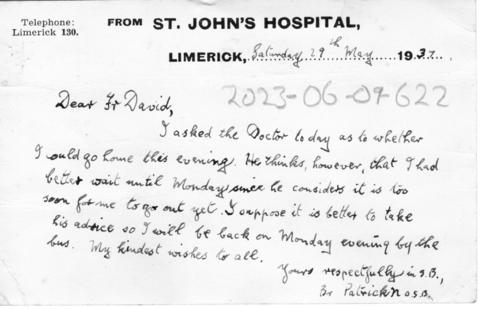 Telephone:
Limerick 130.
FROM ST. JOHN'S HOSPITAL,
LIMERICK, Saturday 29th May 1937.
2023-06-09-622
Dear Fr David,
I asked the Doctor today as to whether
I could go home this evening. He thinks, however, that I had
better wait until Monday since he considers it is too
soon for me to go out yet. I suppose it is better to take
his advice so I will be back on Monday evening by the
bus. My kindest wishes to all.
Yours respectfully in S.B.,
Br Patrick O.S.B.